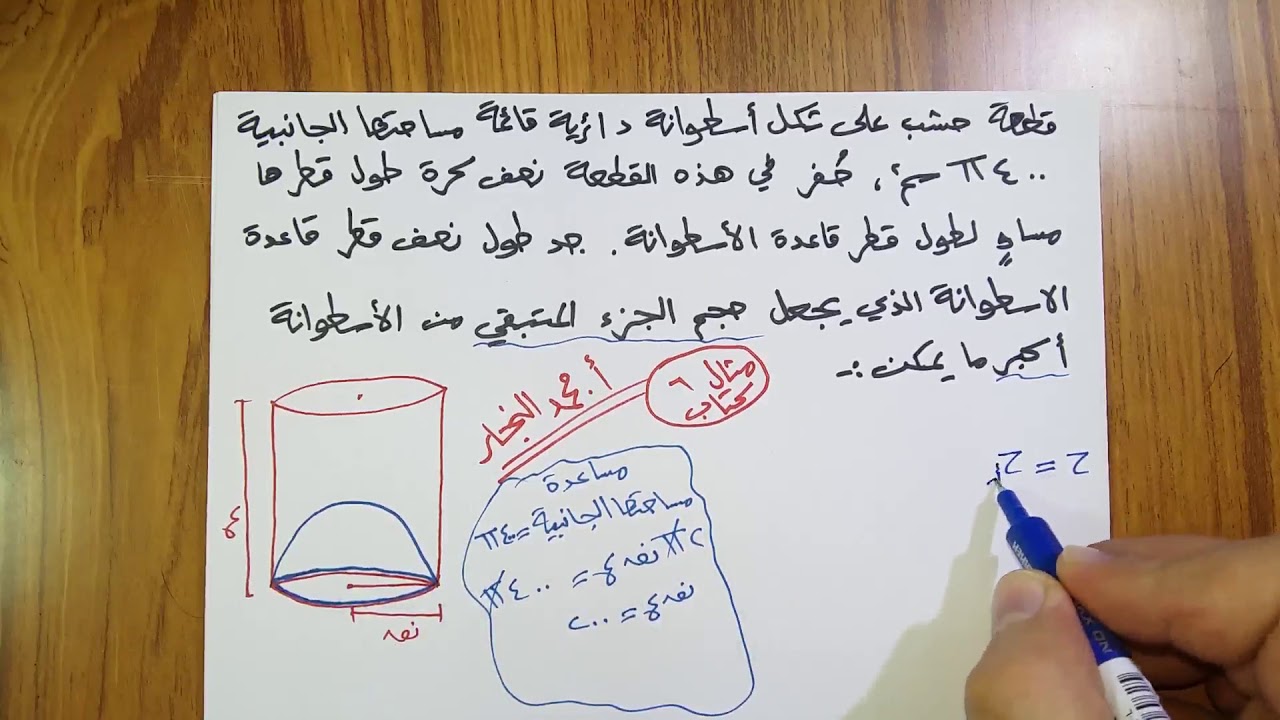 قطعة خشب على شكل أسطوانة دائرية قائمة مساحتها الجانبية
٤٠٠ π سم٢، حُفر في هذه القطعة نصف كرة طول قطرها
مساوٍ لطول قطر قاعدة الأسطوانة. جد طول نصف قطر قاعدة
الاسطوانة الذي يجعل حجم الجزء المتبقي من الأسطوانة
أكبر ما يمكن :-
مثال ٦
كتاب
أ. محمد النجار
مساعدة
مساحتها الجانبية = ٤٠٠ π
٢ π نق ع = ٤٠٠ π
نق ع = ٢٠٠
ع
نق
ح = ح